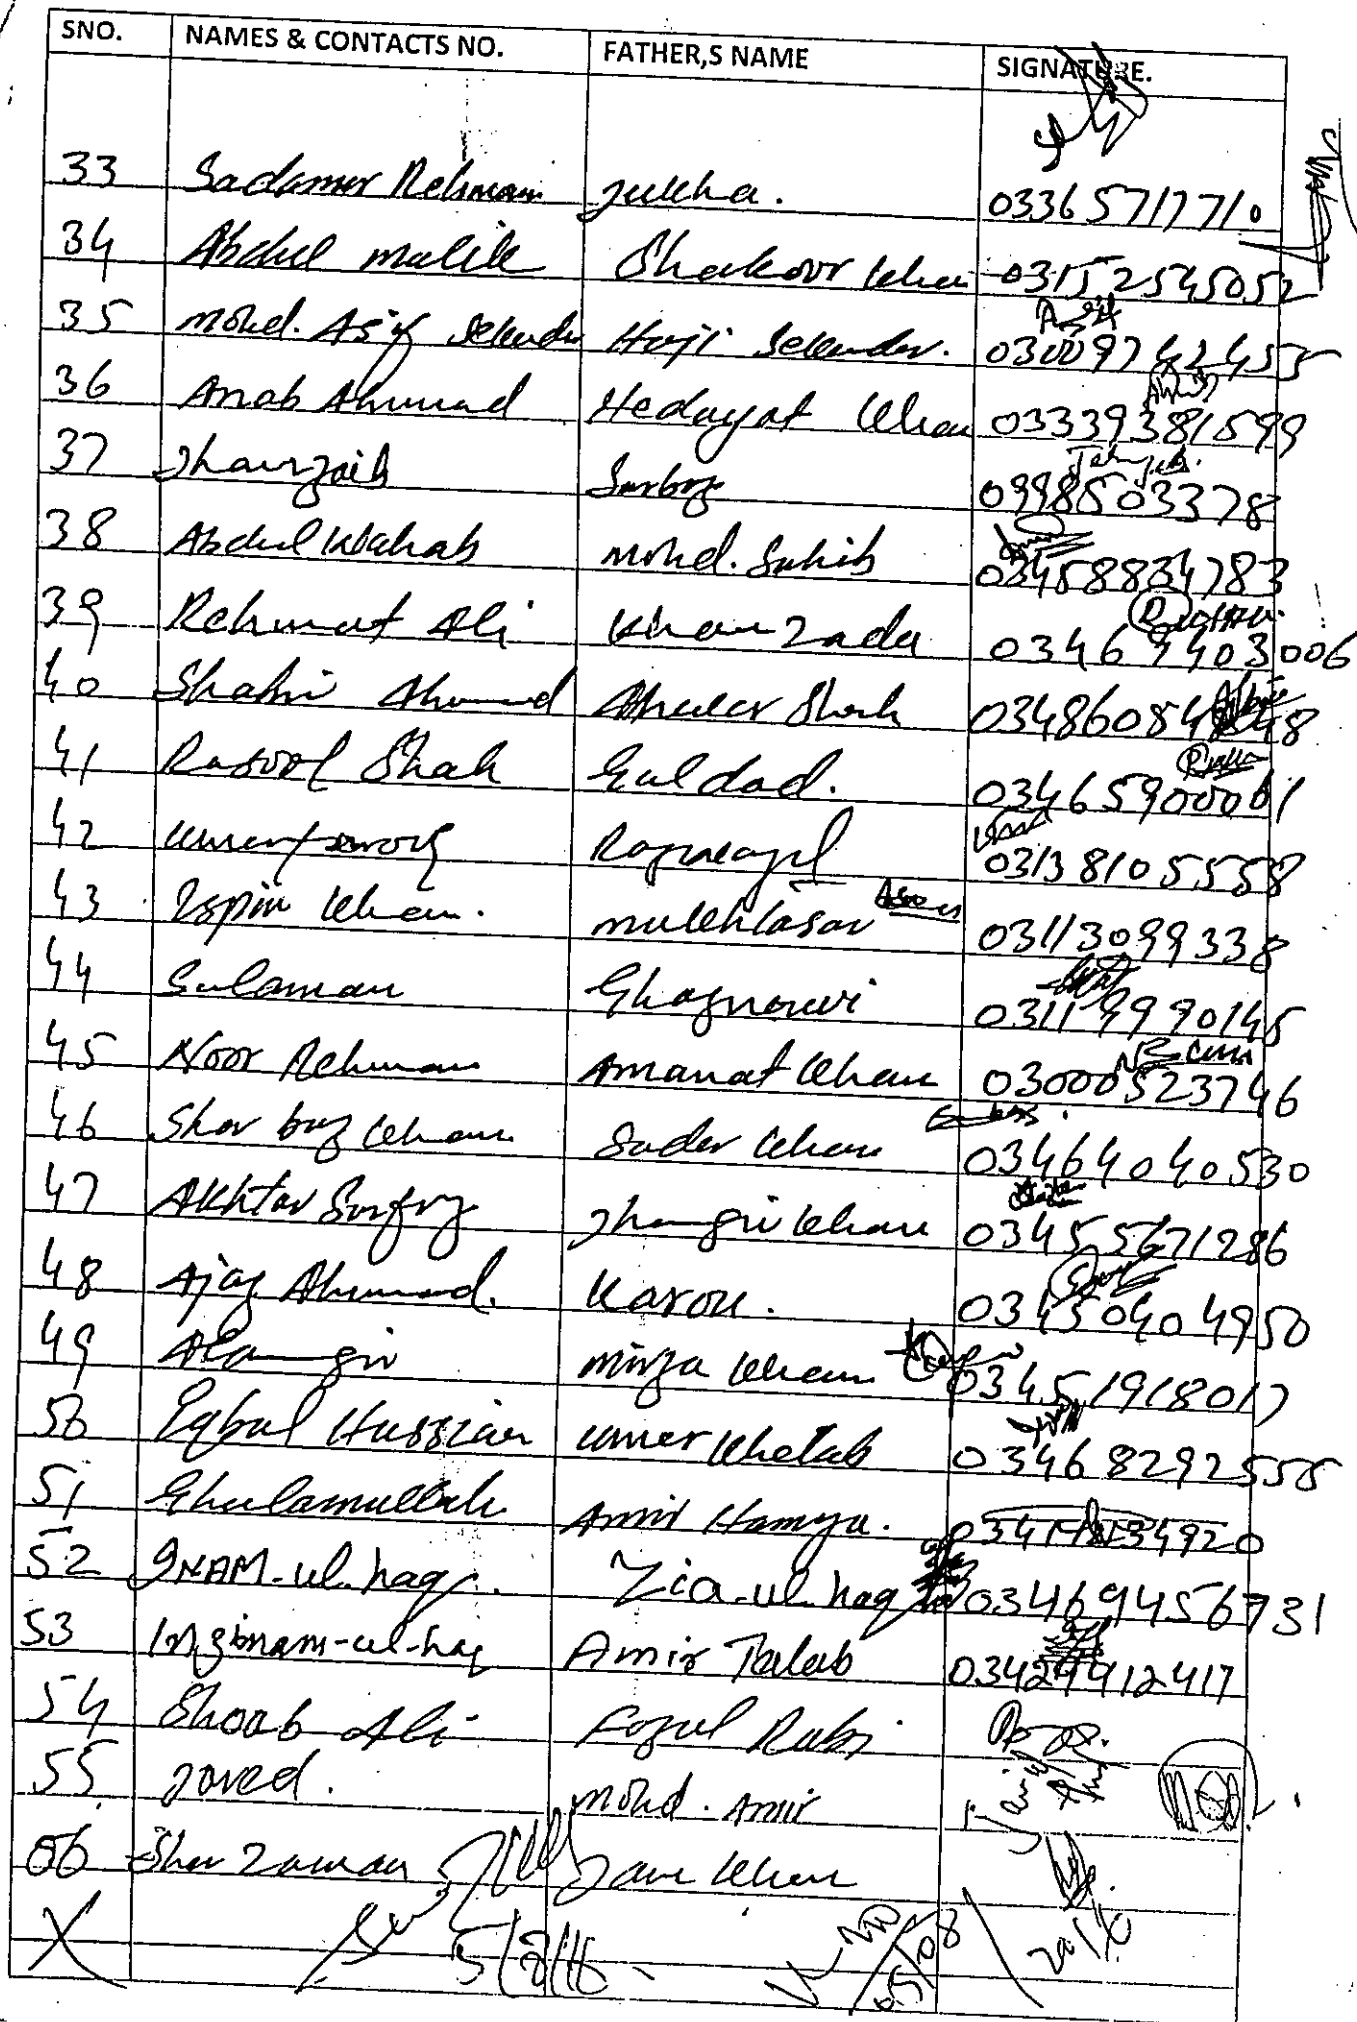 SNO. NAMES & CONTACTS NO. FATHER,S NAME SIGNATURE.
33 Sadamur Rehman 03365717710
34 Abdul malik Shakoor Khan 03152545052
35 Mohd. Asif Sekander Haji Sekander. 03009742455
36 Ahmad Hedayat Khan 03339381599
37 Jhanzaib 09985033778
38 Abdul Wahab Mohd. Sahib 03458834783
39 Rehmat Ali Khan Zada 03469403006
40 Ahmad Shah
41 Rasool Shah Gul dad. 03465900061
42 Umer farooq 03138105558
43 Ispin Khan. mukhlasar 03113099338
44 Sulaman Ghaznowi 03119990145
45 Noor Rehman Amanat Khan 03000523746
46 Shar baz Khan Sader Khan 03464040530
47 Akhtar Sarfrz Jhangir Khan 03455671286
48 Ajaz Ahmad. Karou. 03450404950
49 Alamgir Mirza Khan 03451918017
50 Iqbal Hussian Umer Khetab 03468292555
51 Ghulamullah Amir Hamza.
52 INAM-ul-haq. Zia-ul-haq 03469456731
53 Inzimam-ul-haq Amir Talab 03429912417
54 Shoab Ali Fazul Rabi
55 Javed. Mohd. Amir
56 Sher Zaman Jan Khan